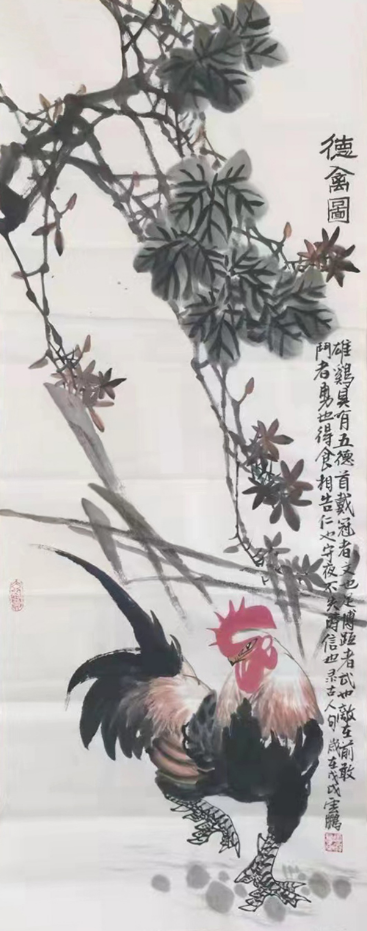 德禽圖
雄鷄具有五德首戴冠者文也足搏距者武也敵在前敢
鬥者勇也得食相告仁也守夜不失時信也录古人句歲在戊戌雲鵬